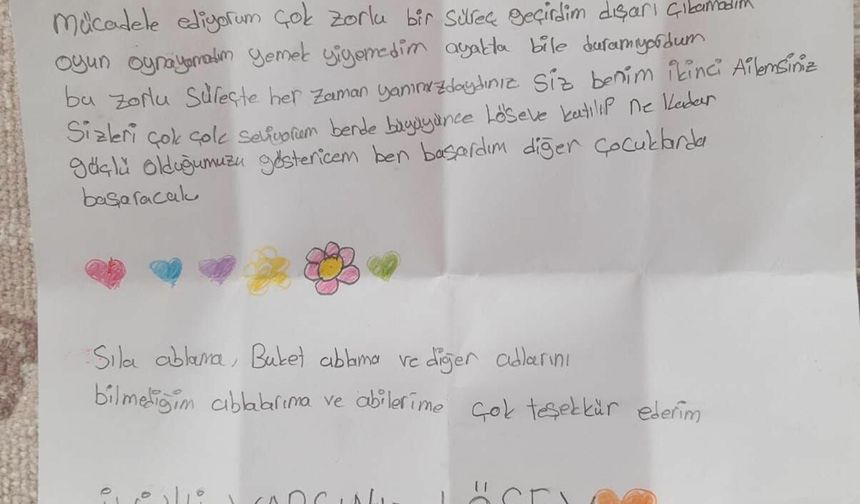 Mücadele ediyorum çok zorlu bir süreç geçirdim dışarı çıkamadım
oyun oynayamadım yemek yiyemedim ayakta bile duramıyordum
bu zorlu süreçte her zaman yanımızdaydınız siz benim ikinci Ailemsiniz
Sizleri çok çok seviyorum bende büyüyünce Lösev'e katılıp ne kadar
güçlü olduğumuzu göstericem ben başardım diğer çocuklarda
başaracak
Sıla ablama, Buket ablama ve diğer adlarını
bilmediğim ablalarıma ve abilerime çok teşekkür ederim